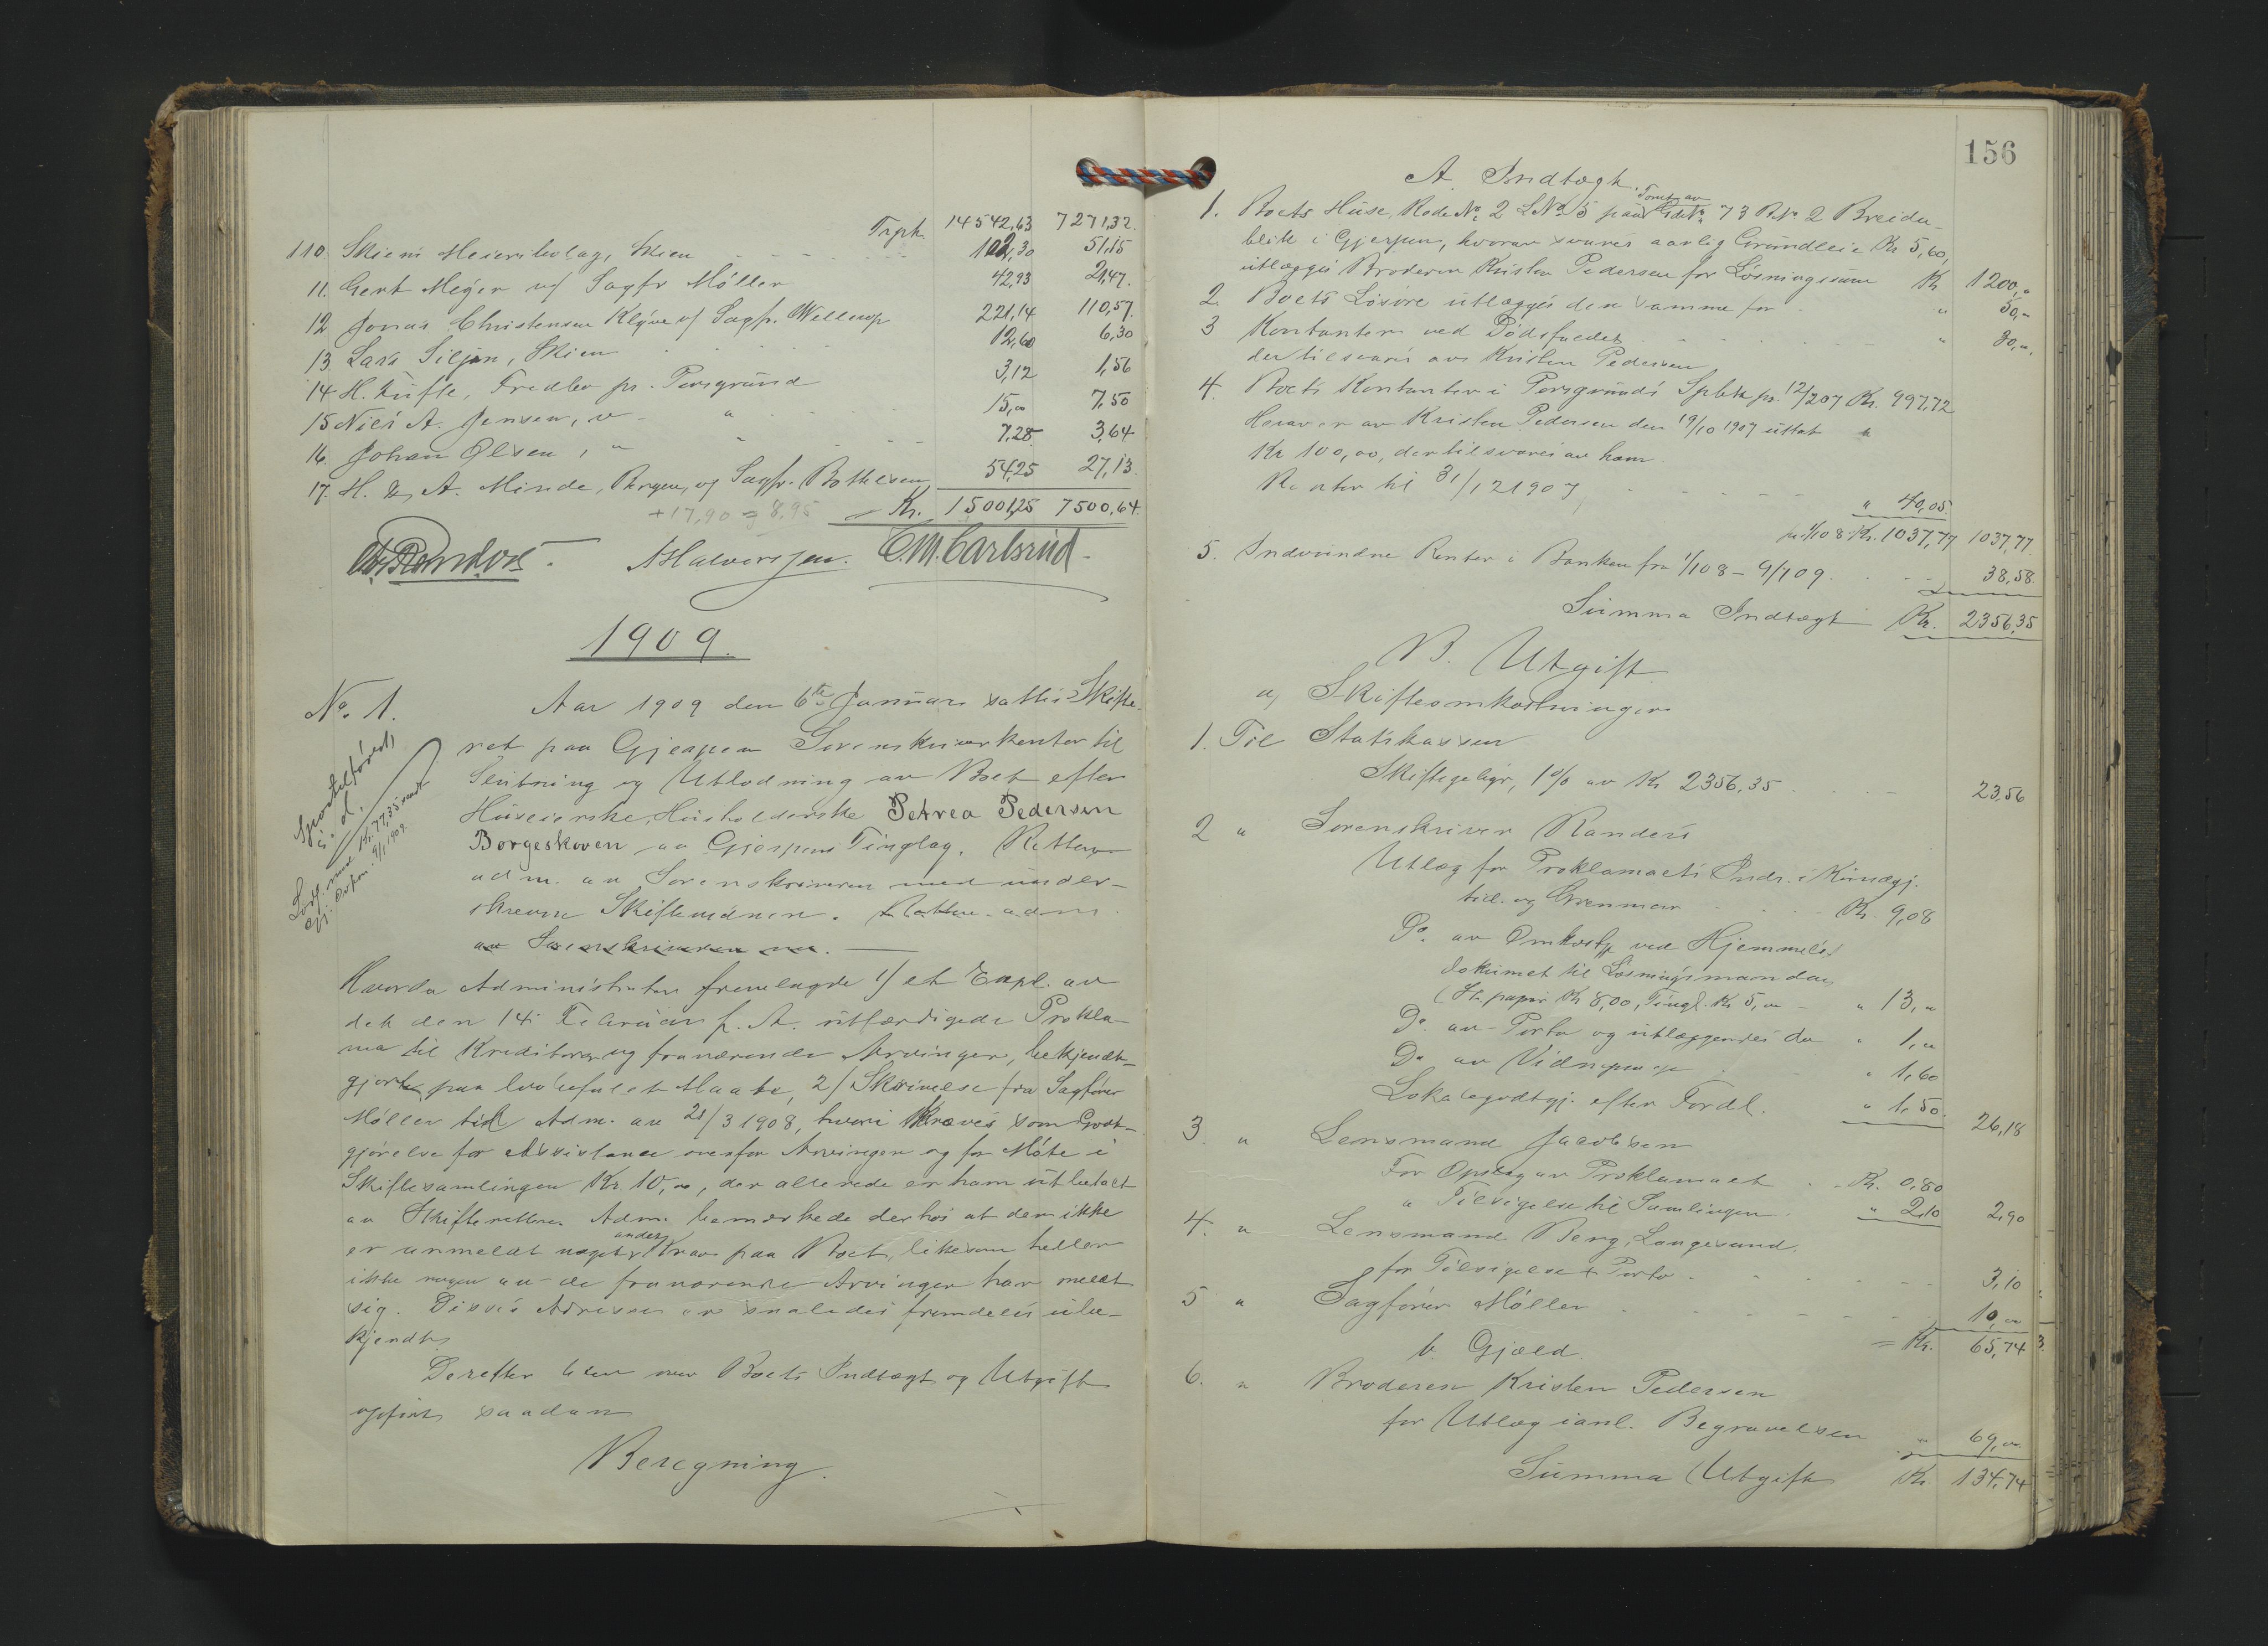 Trpt. 14542,63 7271,32
110. Skiens Meieribolag, Skien 102,30 51,15
11. Gert Meyer v/ Sagfr Møller 42,93 21,47
12. Jonas Christensen Klyve v/ Sagfr. Wellerop 221,14 110,57
13. Lars Siljan, Skien 12,60 6,30
14 H. Tufte, Fredbo pr. Porsgrund 3,12 1,56
15 Nils A. Jensen, " " 15,00 7,50
16. Johan Olsen, " " 7,28 3,64
17. H. & A. Minde, Bergen, v/ Sagfr. Bothelsen 54,25 27,13
+ 17,90 = 8,95 Kr. 15001,25 7500,64
A Halvorsen. C.M. Carlsrud.
1909.
No. 1. Aar 1909 den 6te Januar sattes Skifte-
ret paa Gjerpen Sorenskriverkontor til
Slutning og Utlodning av Boet efter
Huseierske, Husholderske Petrea Pedersen
Borgeskoven av Gjerpens Tinglag. Retten
adm. av Sorenskriveren med under-
skrevne Skiftevidner. Retten adm.
av Sorenskriveren me.
Sportelført
s. d.
Lodsedl. med Kr. 77,35 sendt
Gj. Ovfor. 9/1 1909.
Hvorda Administrator fremlagde 1/ et Expl. av
det den 14. Februar f. A. utfærdigede Prokla-
ma til Kreditorer og fraværende Arvinger, bekjendt-
gjort paa lovbefalet Maate, 2/ Skrivelse fra Sagfører
Møller til Adm. av 21/3 1908, hvori kræves som Godt-
gjørelse for Assistance ovenfor Arvingen og for Møte i
Skiftesamlingen Kr. 10,00, der allerede er ham utbetalt
av Skifteretten. Adm. bemerkede derhos at der ikke
er anmeldt noget andet Krav paa Boet, likesom heller
ikke nogen av de fraværende Arvinger har meldt
sig. Disses Adresser er saaledes fremdeles ube-
kjendt.
Derefter blev over Boets Indtægt og Utgift
opført saadan
Beregning.
156
A. Indtægt.
1. Boets Huse, Rode No. 2 L No 5 paa Tomt av Gds No. 73 B No 2 Breida-
blik i Gjerpen, hvorav svares aarlig Grundleie Kr 5,60,
utlægges Broderen Kristen Pedersen for Løsningssum Kr 1200,"
2. Boets Løsøre utlægges den samme for " 50,"
3 Kontanter ved Dødsfaldet " 30,"
der tilsvares av Kristen Pedersen
4. Boets Kontanter i Porsgrunds Spbk pr. 12/2 07 Kr. 997,72
Herav er av Kristen Pedersen den 19/10 1907 uttat
Kr 100,00, der tilsvares av ham.
Renter til 31/12 1907 " 40,05
pr. 1/1 08 Kr. 1037,77 1037,77
5. Indvundne Renter i Banken fra 1/1 08 - 9/1 09. 38,58
Summa Indtægt Kr. 2356,35
B. Utgift
a, Skifteomkostninger
1. Til Statskassen
Skiftegebyr, 1% av Kr 2356,35 23,56
2 " Sorenskriver Randers
Utlæg for Proklamaets Indr. i Kundgj.
tid. og Grenmar Kr. 9,08
Do. av Omkostn. ved Hjemmels-
dokumet til Løsningsmanden
(St. papir Kr 8,00, Tingl. Kr 5,00 " 13,"
Do. av Porto og utlæggendes do " 1,"
Do av Vidnepenge " 1,60
Lokalegodtgj. efter Fordel. " 1,50 26,18
3. " Lensmand Jacobsen
For Opslag av Proklamaet Kr. 0,80
" Tilsigelse til Samlingen " 2,10 2,90
4. " Lensmand Berg, Langesund,
for Tilsigelse + Porto 3,10
5 " Sagfører Møller 10,00
= Kr. 65,74
b. Gjæld.
6. " Broderen Kristen Pedersen
for Utlæg ianl. Begravelsen " 69,00
Summa Utgift Kr 134,74